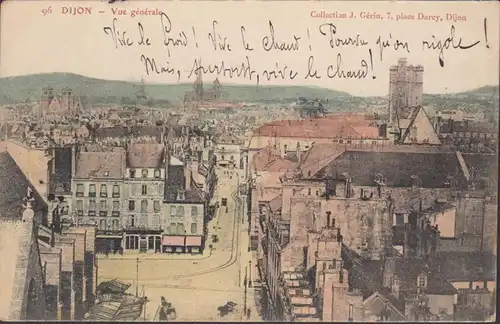 96 DIJON — Vue générale
Collection J. Gérin, 7, place Darcy, Dijon
Vive le froid! Vive le chaud! Pourvu qu'on rigole!
Mais, surtout, vive le chaud!